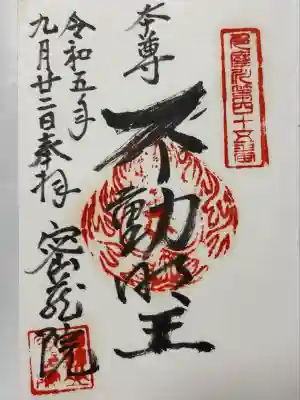 多摩八十八ヶ所第四十五番
本尊
不動明王
令和五年
九月廿二日奉拝
密蔵院